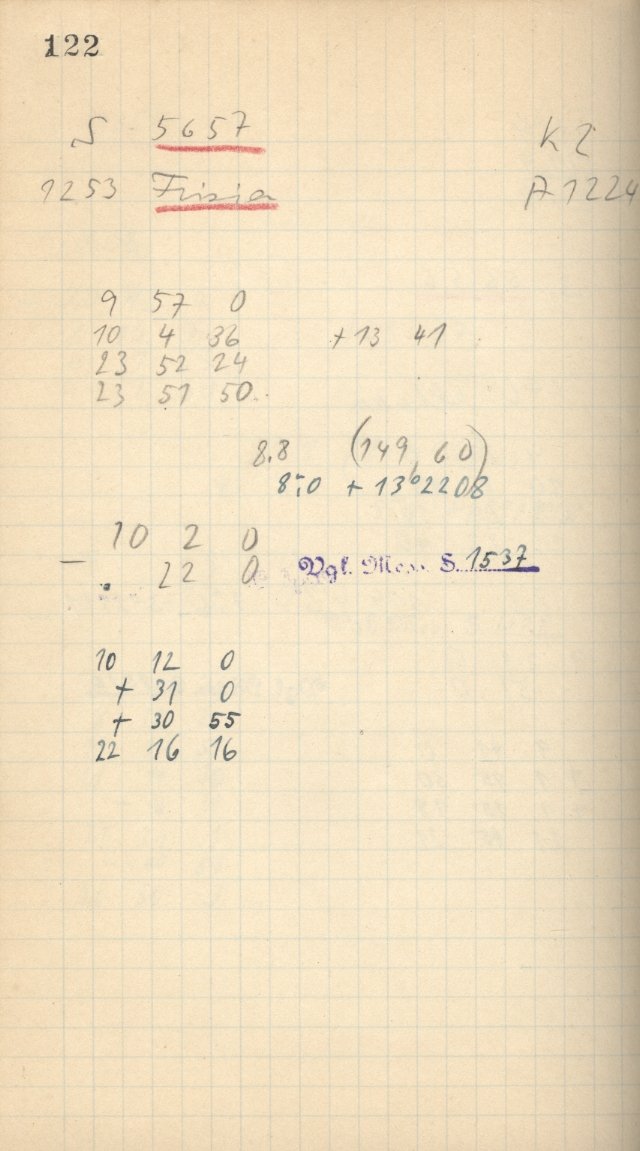 122
S 5657 K 2
1253 Frisia A 1224
9 57 0
10 4 36 +13 41
23 52 24
23 51 50
8,8 (149,60)
8,0 + 13°2208
10 2 0
– . 22 0 Vgl. Mess. S. 1537
10 12 0
+ 31 0
+ 30 55
22 16 16